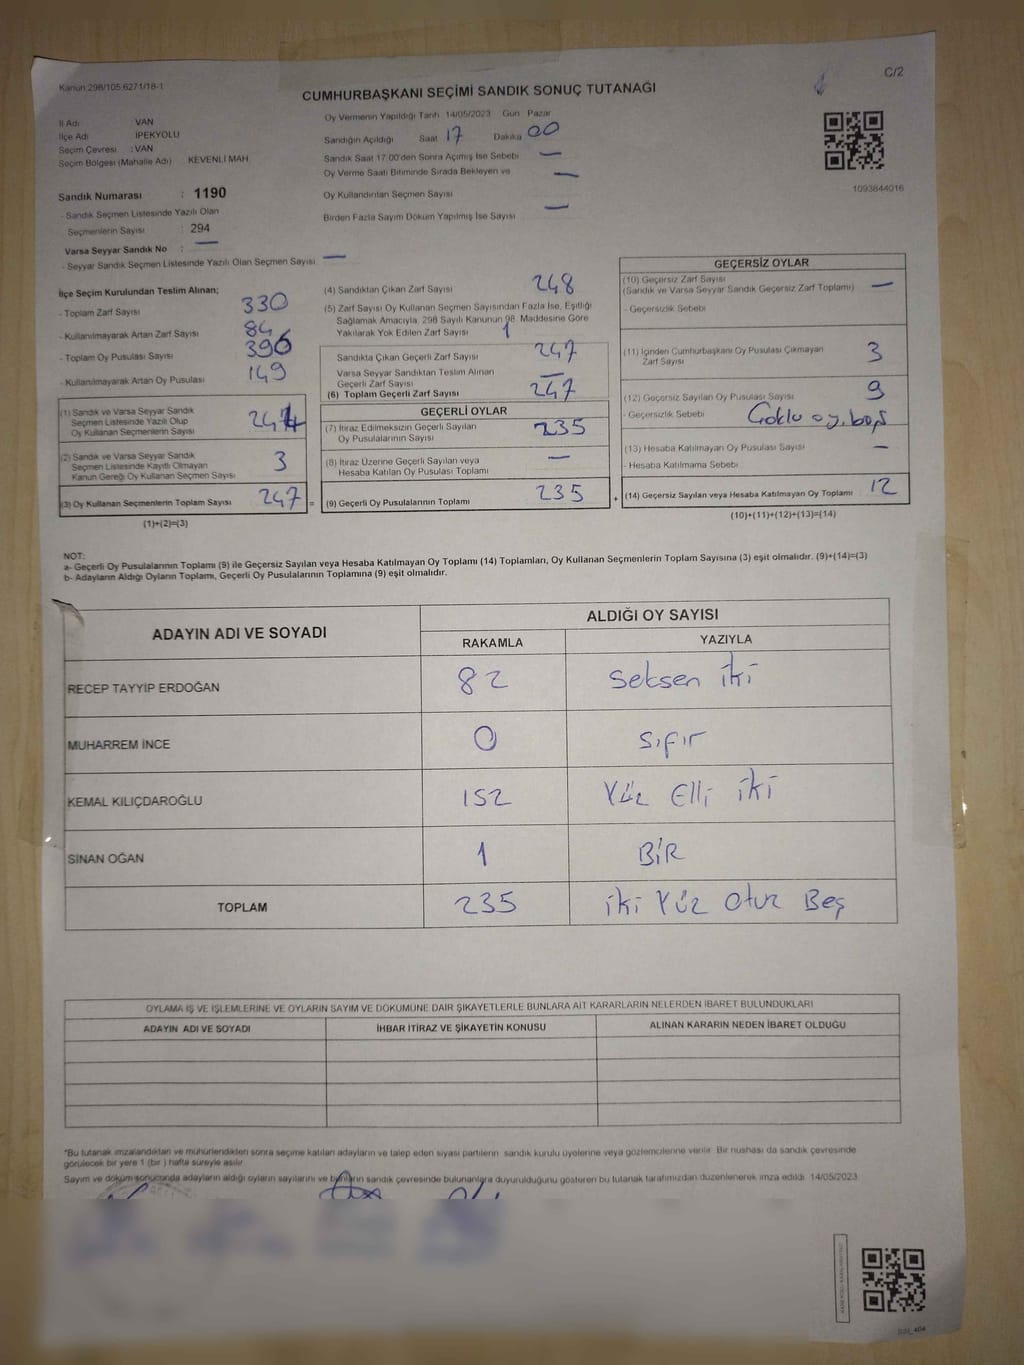 Kanun:298/105.6271/18-1
C/2
CUMHURBAŞKANI SEÇİMİ SANDIK SONUÇ TUTANAĞI
İl Adı VAN
İlçe Adı İPEKYOLU
Seçim Çevresi : VAN
Seçim Bölgesi (Mahalle Adı) KEVENLİ MAH
Sandık Numarası : 1190
- Sandık Seçmen Listesinde Yazılı Olan
Seçmenlerin Sayısı : 294
Varsa Seyyar Sandık No : —
- Seyyar Sandık Seçmen Listesinde Yazılı Olan Seçmen Sayısı —
Oy Vermenin Yapıldığı Tarih 14/05/2023 Gün Pazar
Sandığın Açıldığı Saat 17 Dakika 00
Sandık Saat 17:00'den Sonra Açımış İse Sebebi —
Oy Verme Saati Bitiminde Sırada Bekleyen ve —
Oy Kullandırılan Seçmen Sayısı
Birden Fazla Sayım Döküm Yapılmış İse Sayısı —
1093844016
İlçe Seçim Kurulundan Teslim Alınan;
- Toplam Zarf Sayısı 330
- Kullanılmayarak Artan Zarf Sayısı 84
- Toplam Oy Pusulası Sayısı 396
- Kullanılmayarak Artan Oy Pusulası 149
(1) Sandık ve Varsa Seyyar Sandık
Seçmen Listesinde Yazılı Olup
Oy Kullanan Seçmenlerin Sayısı 244
(2) Sandık ve Varsa Seyyar Sandık
Seçmen Listesinde Kayıtlı Olmayan
Kanun Gereği Oy Kullanan Seçmen Sayısı 3
(3) Oy Kullanan Seçmenlerin Toplam Sayısı 247 =
(1)+(2)=(3)
(4) Sandıktan Çıkan Zarf Sayısı 248
(5) Zarf Sayısı Oy Kullanan Seçmen Sayısından Fazla İse, Eşitliği
Sağlamak Amacıyla, 298 Sayılı Kanunun 98. Maddesine Göre
Yakılarak Yok Edilen Zarf Sayısı 1
Sandıkta Çıkan Geçerli Zarf Sayısı 247
Varsa Seyyar Sandıktan Teslim Alınan
Geçerli Zarf Sayısı —
(6) Toplam Geçerli Zarf Sayısı 247
GEÇERLİ OYLAR
(7) İtiraz Edilmeksizin Geçerli Sayılan
Oy Pusulalarının Sayısı 235
(8) İtiraz Üzerine Geçerli Sayılan veya
Hesaba Katılan Oy Pusulası Toplamı —
(9) Geçerli Oy Pusulalarının Toplamı 235 +
GEÇERSİZ OYLAR
(10) Geçersiz Zarf Sayısı
(Sandık ve Varsa Seyyar Sandık Geçersiz Zarf Toplamı) —
- Geçersizlik Sebebi
(11) İçinden Cumhurbaşkanı Oy Pusulası Çıkmayan
Zarf Sayısı 3
(12) Geçersiz Sayılan Oy Pusulası Sayısı 9
- Geçersizlik Sebebi Çoklu oy, boş
(13) Hesaba Katılmayan Oy Pusulası Sayısı —
- Hesaba Katılmama Sebebi
(14) Geçersiz Sayılan veya Hesaba Katılmayan Oy Toplamı 12
(10)+(11)+(12)+(13)=(14)
NOT:
a- Geçerli Oy Pusulalarının Toplamı (9) ile Geçersiz Sayılan veya Hesaba Katılmayan Oy Toplamı (14) Toplamları, Oy Kullanan Seçmenlerin Toplam Sayısına (3) eşit olmalıdır. (9)+(14)=(3)
b- Adayların Aldığı Oyların Toplamı, Geçerli Oy Pusulalarının Toplamına (9) eşit olmalıdır.
ADAYIN ADI VE SOYADI ALDIĞI OY SAYISI
RAKAMLA YAZIYLA
RECEP TAYYİP ERDOĞAN 82 Seksen iki
MUHARREM İNCE 0 Sıfır
KEMAL KILIÇDAROĞLU 152 Yüz Elli iki
SİNAN OĞAN 1 BİR
TOPLAM 235 iki Yüz Otuz Beş
OYLAMA İŞ VE İŞLEMLERİNE VE OYLARIN SAYIM VE DÖKÜMÜNE DAİR ŞİKAYETLERLE BUNLARA AİT KARARLARIN NELERDEN İBARET BULUNDUKLARI
ADAYIN ADI VE SOYADI İHBAR İTİRAZ VE ŞİKAYETİN KONUSU ALINAN KARARIN NEDEN İBARET OLDUĞU
*Bu tutanak imzalandıktan ve mühürlendikten sonra seçime katılan adayların ve talep eden siyasi partilerin sandık kurulu üyelerine veya gözlemcilerine verilir. Bir nüshası da sandık çevresinde
görülecek bir yere 1 (bir ) hafta süreyle asılır.
Sayım ve döküm sonucunda adayların aldığı oyların sayılarını ve bunların sandık çevresinde bulunanlara duyurulduğunu gösteren bu tutanak tarafımızdan düzenlenerek imza edildi. 14/05/2023